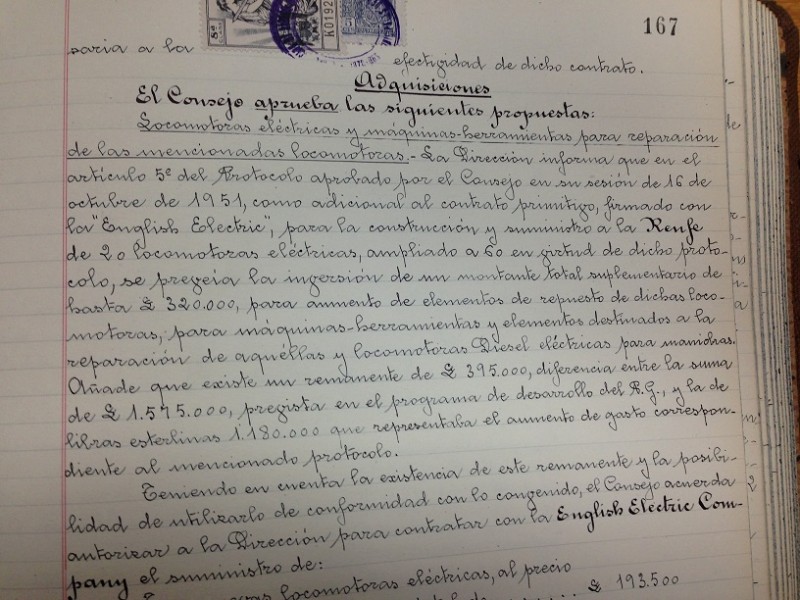 167
saria a la efectividad de dicho contrato.
Adquisiciones
El Consejo aprueba las siguientes propuestas:
Locomotoras eléctricas y máquinas-herramientas para reparación
de las mencionadas locomotoras.- La Dirección informa que en el
artículo 5º del Protocolo aprobado por el Consejo en su sesión de 16 de
octubre de 1951, como adicional al contrato primitivo, firmado con
la "English Electric", para la construcción y suministro a la Renfe
de 20 locomotoras eléctricas, ampliado a 60 en virtud de dicho proto-
colo, se preveía la inversión de un montante total suplementario de
hasta £ 320.000, para aumento de elementos de repuesto de dichas loco-
motoras, para máquinas-herramientas y elementos destinados a la
reparación de aquéllas y locomotoras Diesel eléctricas para maniobras.
Añade que existe un remanente de £ 395.000, diferencia entre la suma
de £ 1.575.000, prevista en el programa de desarrollo del A.G., y la de
libras esterlinas 1.180.000 que representaba el aumento de gasto correspon-
diente al mencionado protocolo.
Teniendo en cuenta la existencia de este remanente y la posibi-
lidad de utilizarlo de conformidad con lo convenido, el Consejo acuerda
autorizar a la Dirección para contratar con la English Electric Com-
pany el suministro de:
locomotoras eléctricas, al precio
£ 193.500